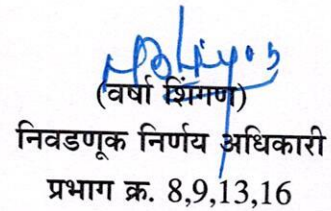 (वर्षा शिंगण)
निवडणूक निर्णय अधिकारी
प्रभाग क्र. 8,9,13,16